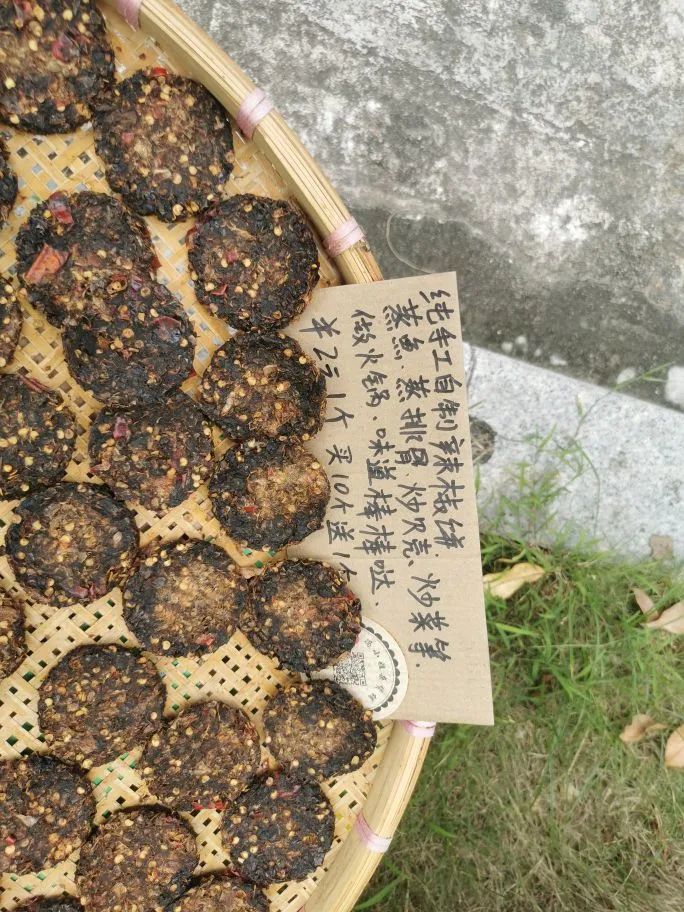 纯手工自制辣桔饼.
蒸鱼.蒸排骨 炒贝壳、炒菜等.
做火锅 味道棒棒哒、
¥2元1个 买10个送1个